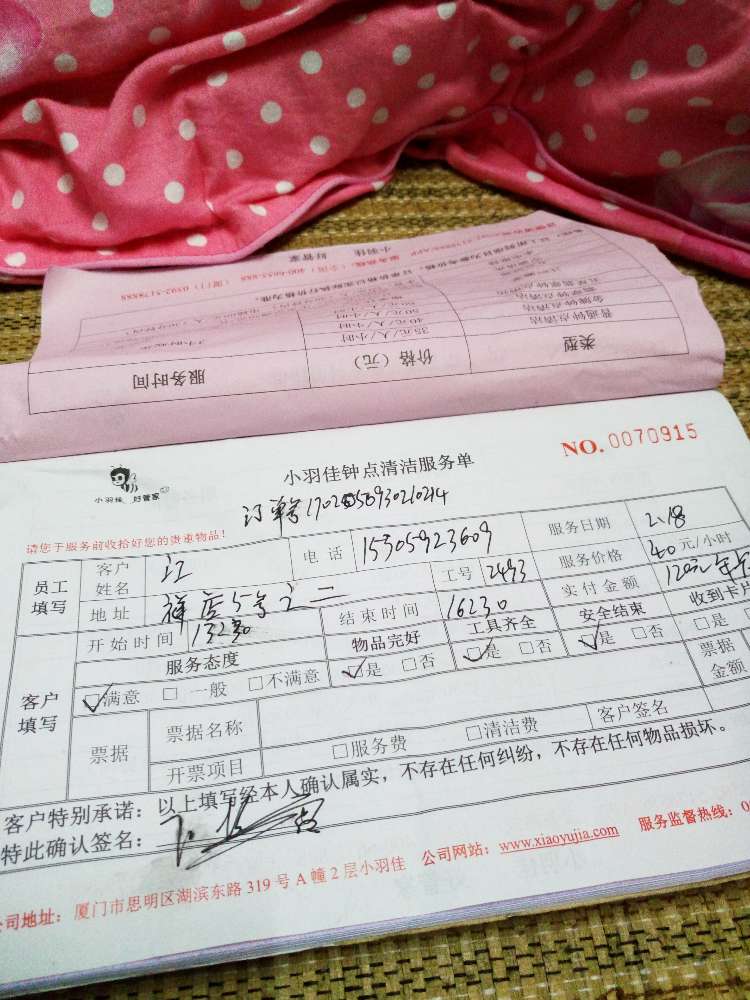 服务时间 价格（元） 类型
35元/人/小时 普通钟点清洁
40元/人/小时 金牌钟点清洁
小羽佳 好管家
NO.0070915
小羽佳钟点清洁服务单
小羽佳 好管家
请您于服务前收拾好您的贵重物品！
员工填写 客户姓名 江 电话 15305923609 服务日期 2.18
地址 祥店5号之二 工号 2493 服务价格 40元/小时
开始时间 13:30 结束时间 16:30 实付金额
客户填写 服务态度 物品完好 工具齐全 安全结束 收到卡片
☑满意 □一般 □不满意 ☑是 □否 ☑是 □否 ☑是 □否 □是
票据 票据名称 票据金额
开票项目 □服务费 □清洁费 客户签名
客户特别承诺：以上填写经本人确认属实，不存在任何纠纷，不存在任何物品损坏。
特此确认签名：
公司地址：厦门市思明区湖滨东路319号A幢2层小羽佳 公司网站：www.xiaoyujia.com 服务监督热线：0